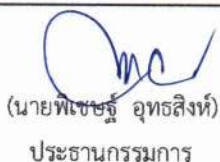 (นายพิเชษฐ์ อุทธสิงห์)
ประธานกรรมการ